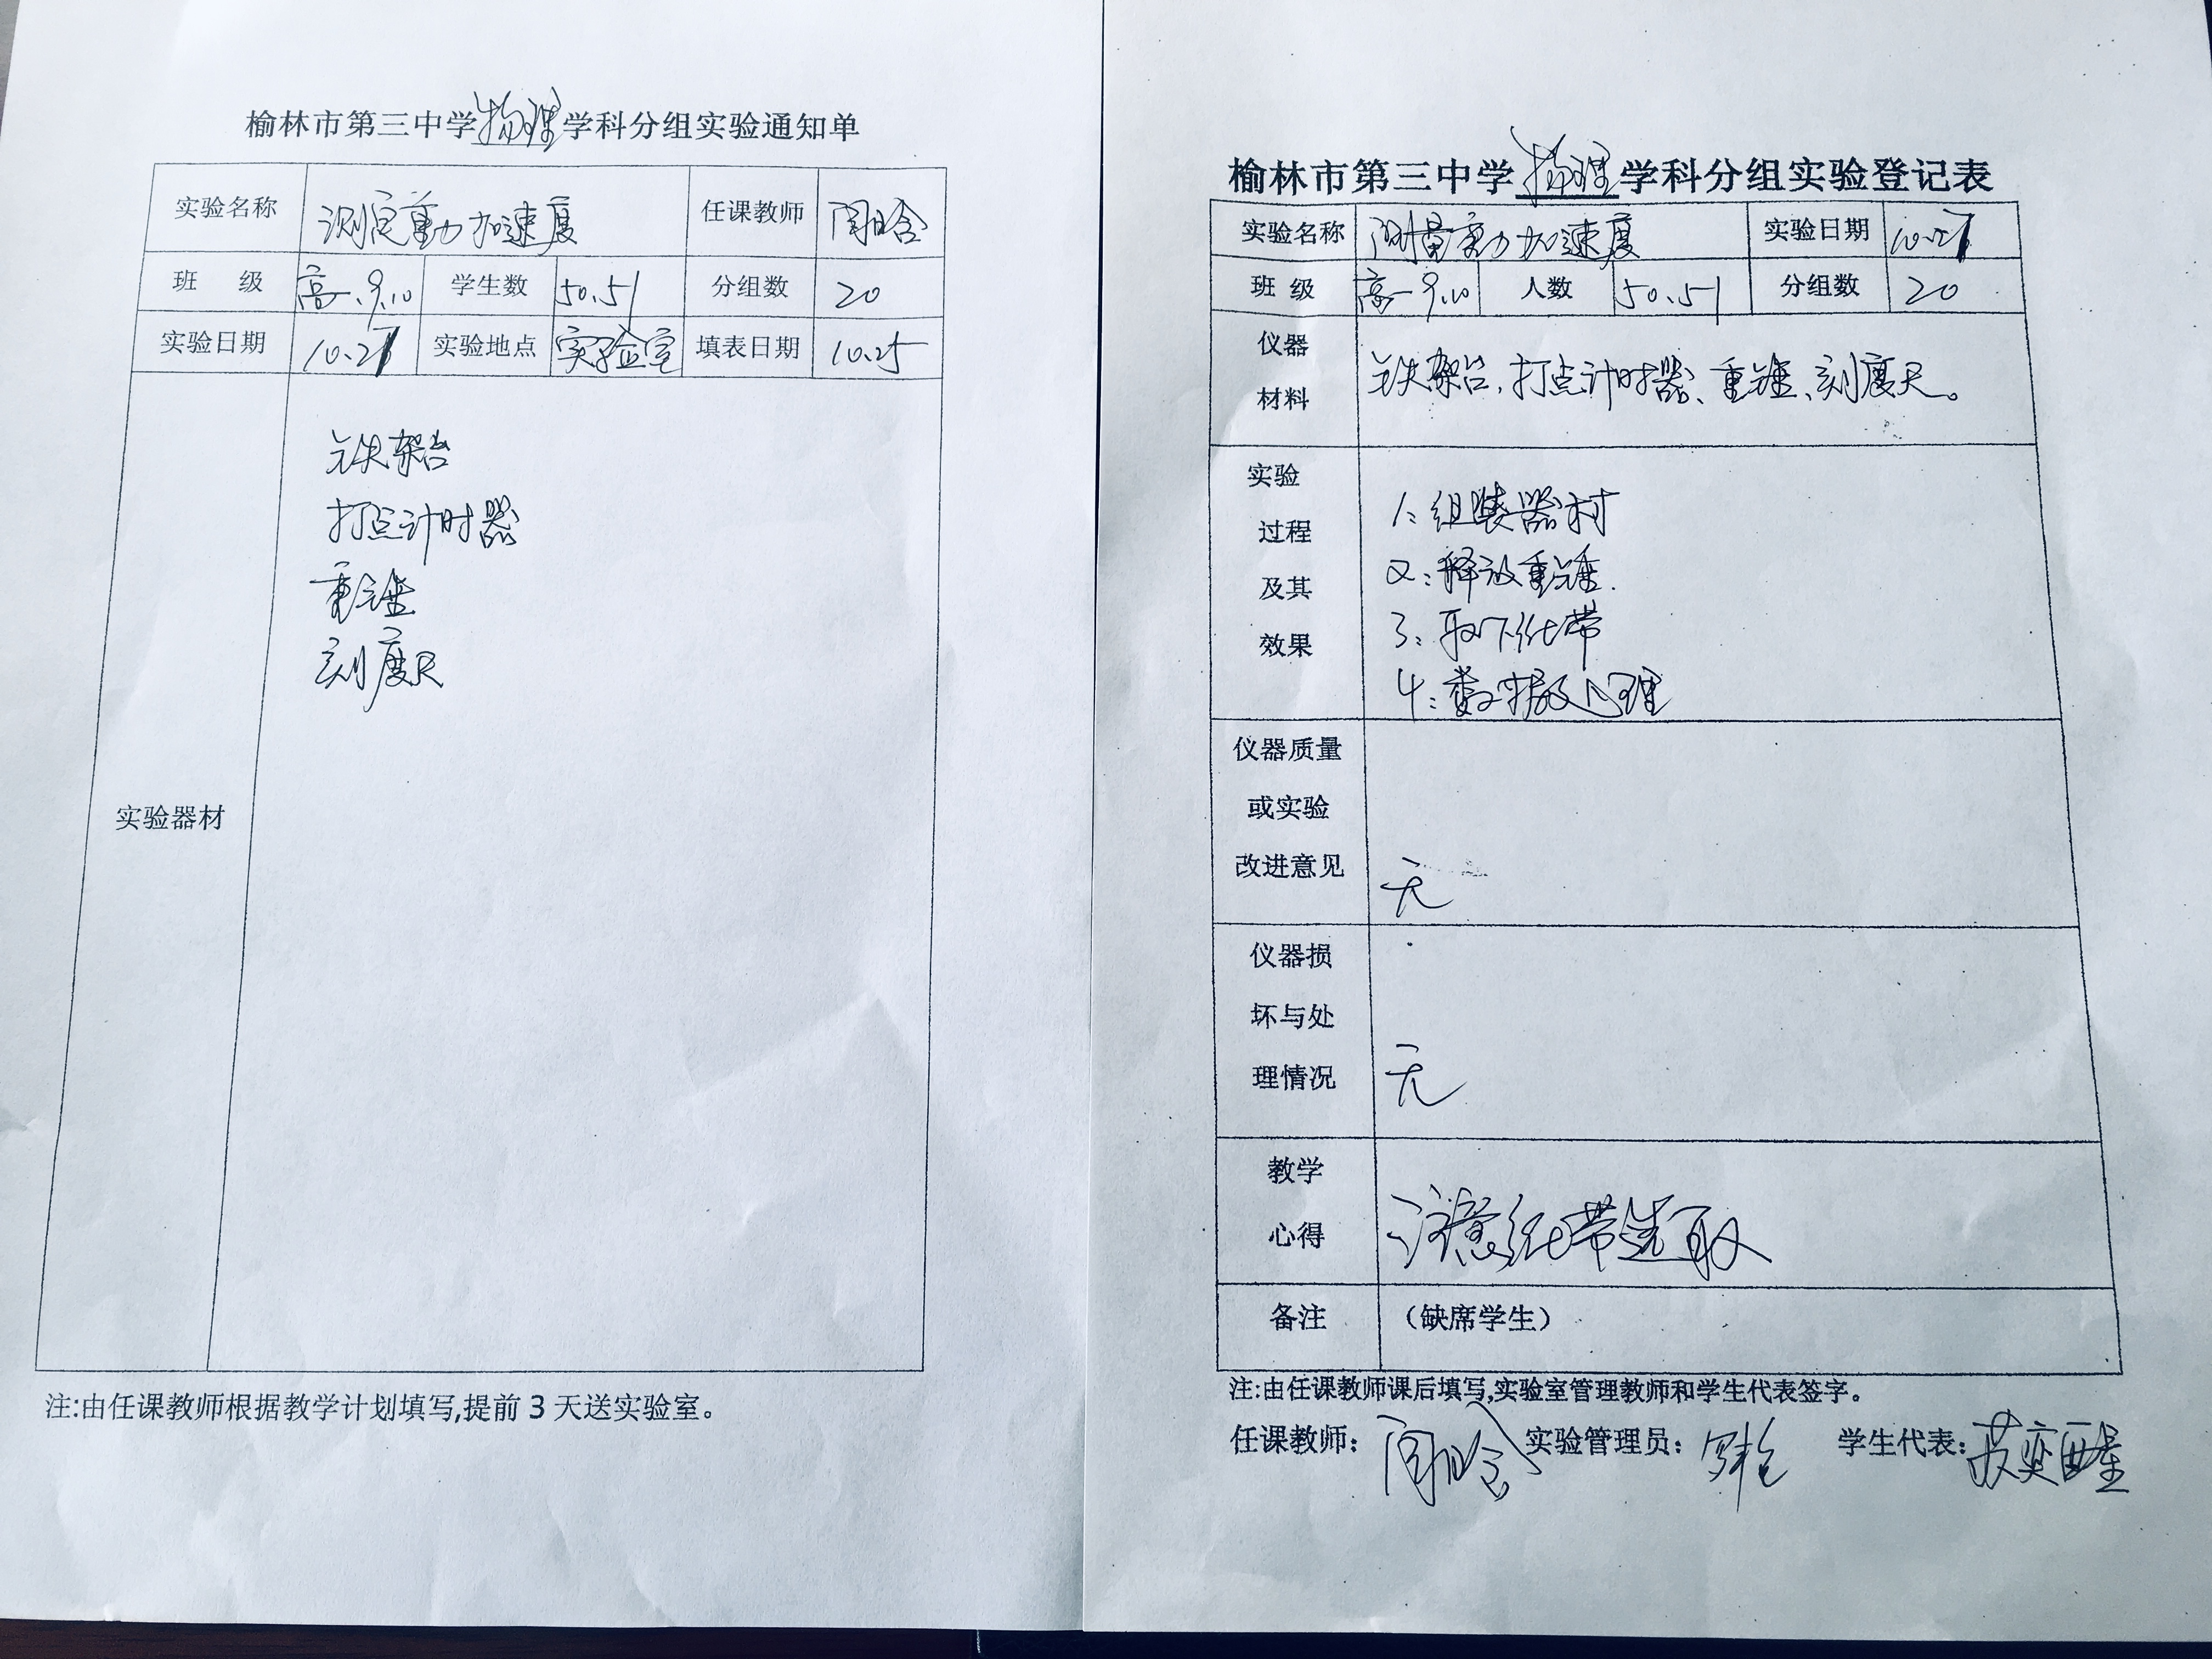 榆林市第三中学物理学科分组实验通知单
实验名称 测定重力加速度 任课教师
班 级 高一9.10 学生数 50.51 分组数 20
实验日期 10.27 实验地点 实验室 填表日期 10.25
实验器材
铁架台
打点计时器
重锤
刻度尺
注:由任课教师根据教学计划填写,提前3天送实验室。
榆林市第三中学物理学科分组实验登记表
实验名称 测量重力加速度 实验日期 10.27
班 级 高一9.10 人数 50.51 分组数 20
仪器
材料
铁架台,打点计时器、重锤、刻度尺。
实验
过程
及其
效果
1:组装器材
2:释放重锤.
3:取下纸带
4:数据处理
仪器质量
或实验
改进意见
无
仪器损
坏与处
理情况
无
教学
心得
注意纸带选取
备注 (缺席学生)
注:由任课教师课后填写,实验室管理教师和学生代表签字。
任课教师: 实验管理员: 学生代表: